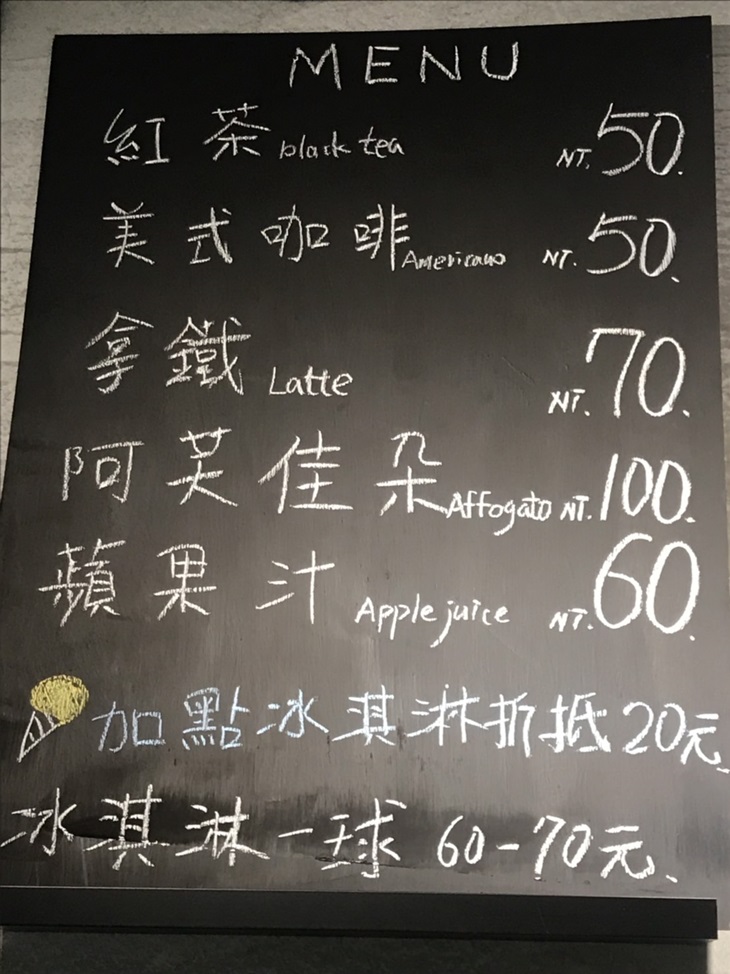 MENU
紅茶 black tea NT. 50.
美式咖啡 Americano NT. 50.
拿鐵 Latte NT. 70.
阿芙佳朵 Affogato NT. 100.
蘋果汁 Apple juice NT. 60.
加點冰淇淋折抵20元.
冰淇淋一球 60-70元.